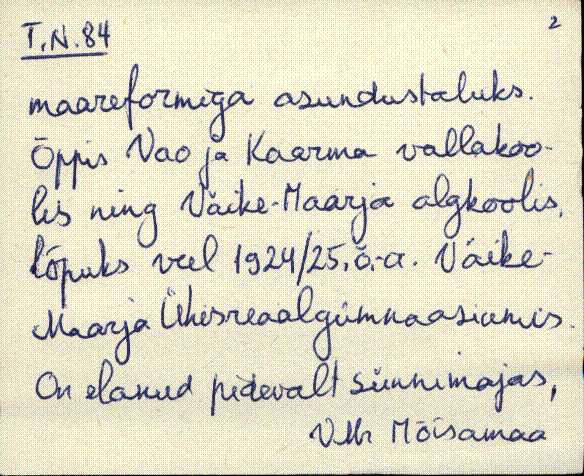 T.N.84 2
maareformiga asundustaluks.
Õppis Vao ja Kaarma vallakoo-
lis ning Väike-Maarja algkoolis,
lõpuks veel 1924/25.õ.-a. Väike-
Maarja Ühisreaalgümnaasiumis.
On elanud pidevalt sünnimajas,
VMr Mõisamaa